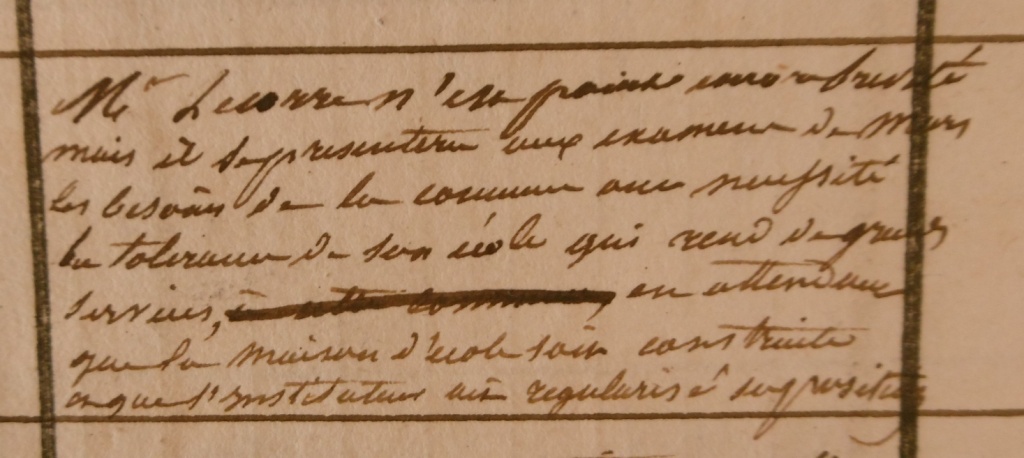 Mr Lecorre n'est point encore breveté
mais il se presentera aux examens de Mars
les besoins de la commune ont necessité
la tolerance de son école qui rend de grands
services, à cette commune, en attendant
que la maison d'ecole soit construite
et que l'instituteur ait regularisé sa position